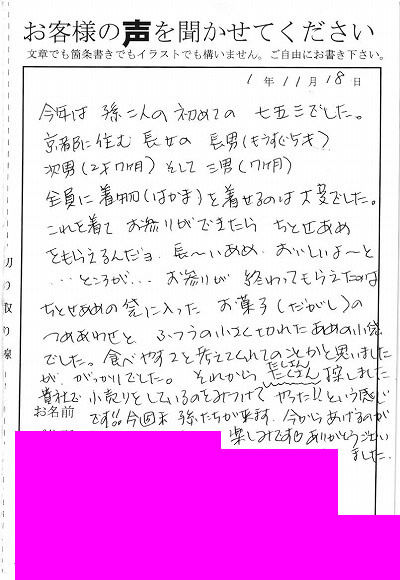 お客様の声を聞かせてください
文章でも箇条書きでもイラストでも構いません。ご自由にお書き下さい。
1年11月18日
今年は 孫三人の初めての 七五三でした。
京都に住む 長女の 長男(もうすぐ5才)
次男(2才7ヶ月) そして 三男(7ヶ月)
全員に着物(はかま)を着せるのは大変でした。
これを着て お参りができたら ちとせあめ
をもらえるんだヨ 長〜いあめ、おいしいよ〜と
...ところが... お参りが 終わってもらえたのは
ちとせあめの袋に入った お菓子(だがし)の
つめあわせと、ふつうの小さく切れたあめの小袋
でした。食べやすさを考えてくれてのことかと思いました
が、がっかりでした。それから たくさん 探しました
貴社で 小売りをしているのをみつけて やった!! という感じ
です!! 今週末 孫たちが来ます。今からあげるのが
楽しみです ありがとうござい
ました。
お名前
切り取り線